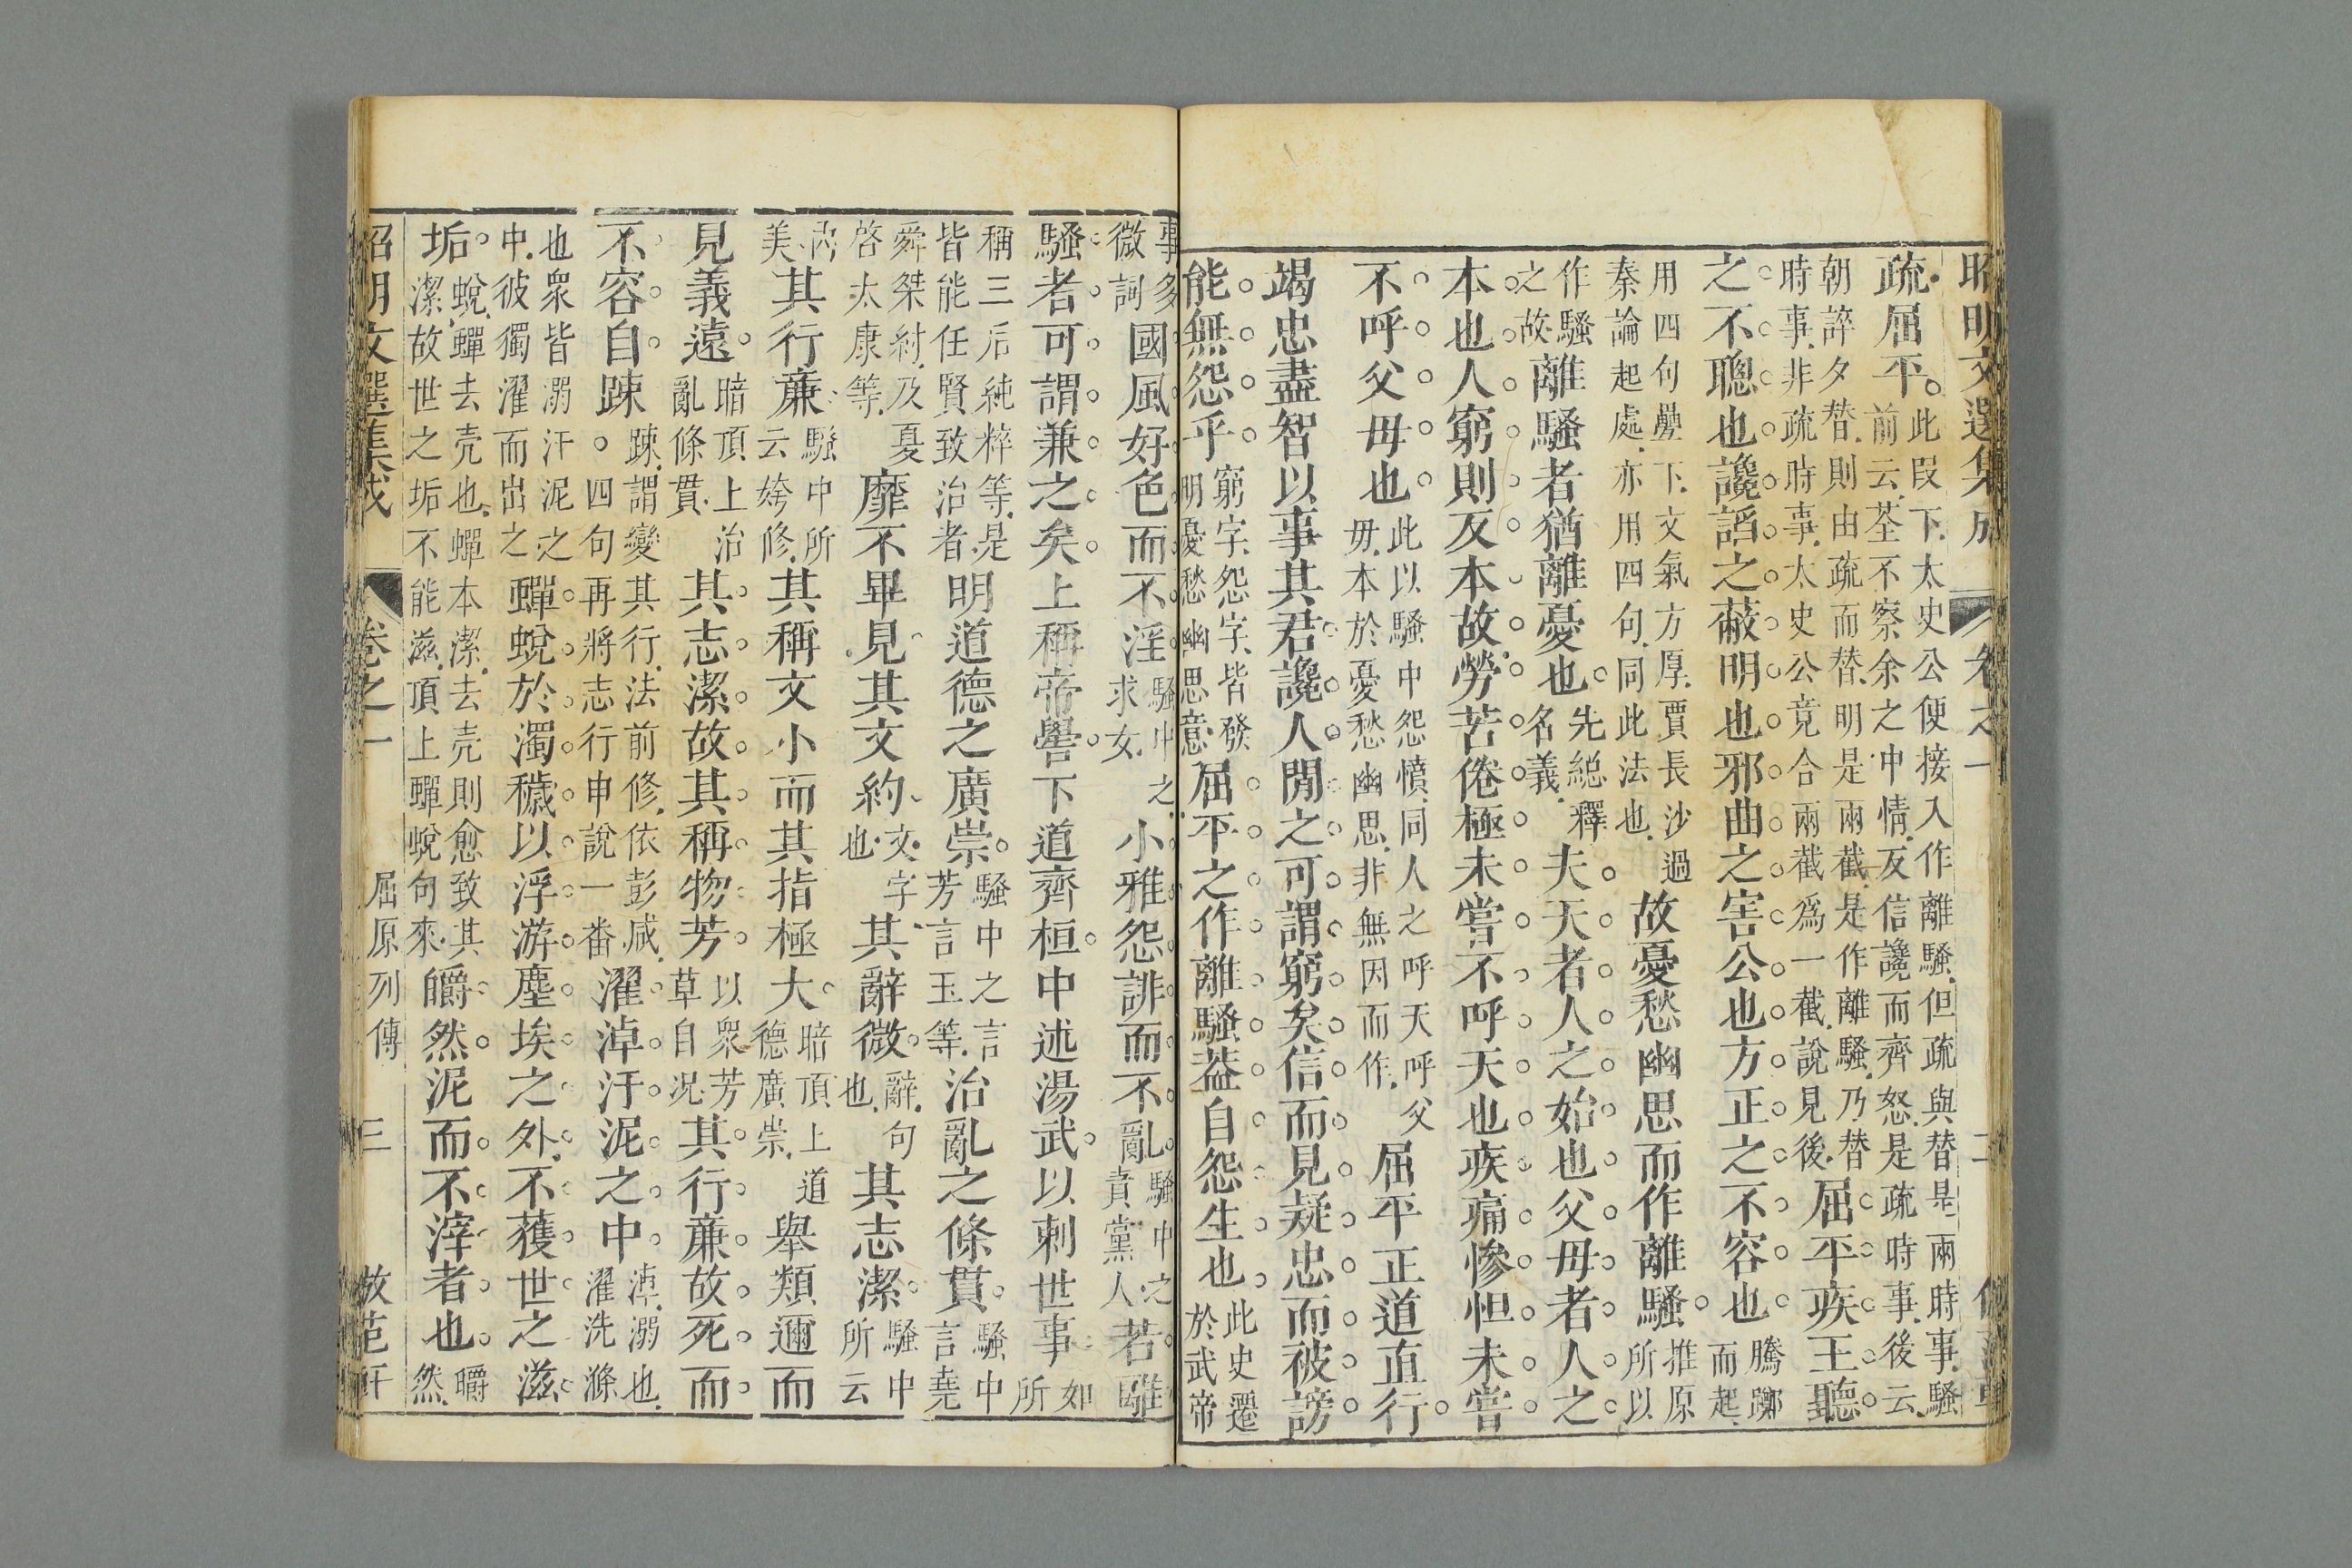 昭明文選集成　卷之一　二
疏屈平。此段下太史公便接入作離騷但疏與替是兩時事騷前云荃不察余之中情反信讒而齊怒是疏時事後云
朝誶夕替則由疏而替明是兩截是作離騷乃替時事非疏時事太史公竟合兩截爲一截說見後屈平疾王聽
之不聰也讒諂之蔽明也邪曲之害公也方正之不容也騰躑而起
用四句疊下文氣方厚賈長沙過秦論起處亦用四句同此法也故憂愁幽思而作離騷推原所以
作騷之故離騷者猶離憂也先總釋名義夫天者人之始也父母者人之
本也人窮則反本故勞苦倦極未嘗不呼天也疾痛慘怛未嘗
不呼父母也此以騷中怨憤同人之呼天呼父母本於憂愁幽思非無因而作屈平正道直行
竭忠盡智以事其君讒人閒之可謂窮矣信而見疑忠而被謗
能無怨乎窮字怨字皆發明憂愁幽思意屈平之作離騷葢自怨生也此史遷於武帝
事多微詞國風好色而不淫騷中之求女小雅怨誹而不亂騷中之責黨人若離
騷者可謂兼之矣上稱帝嚳下道齊桓中述湯武以刺世事如所
稱三后純粹等是皆能任賢致治者明道德之廣崇騷中之言芳言玉等治亂之條貫騷中言堯
舜桀紂及夏啓太康等靡不畢見其文約文字也其辭微辭句也其志潔騷中所云
內美其行廉騷中所云姱修其稱文小而其指極大暗頂上道德廣崇舉類邇而
見義遠暗頂上治亂條貫其志潔故其稱物芳以衆芳草自况其行廉故死而
不容自踈踈謂變其行法前修依彭咸四句再將志行申說一番濯淖汙泥之中淖溺也濯洗滌
也衆皆溺汙泥之中彼獨濯而出之蟬蛻於濁穢以浮游塵埃之外不獲世之滋
垢蛻蟬去壳也蟬本潔去壳則愈致其潔故世之垢不能滋頂上蟬蛻句來皭然泥而不滓者也皭然
昭明文選集成　卷之一　屈原列傳　三　倣范軒